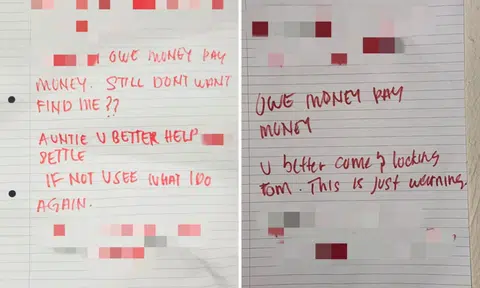 OWE MONEY PAY
MONEY. STILL DONT WANT
FIND ME??
AUNTIE U BETTER HELP
SETTLE
IF NOT U SEE WHAT I DO
AGAIN.
OWE MONEY PAY
MONEY
U better come & looking
. This is just wearning.